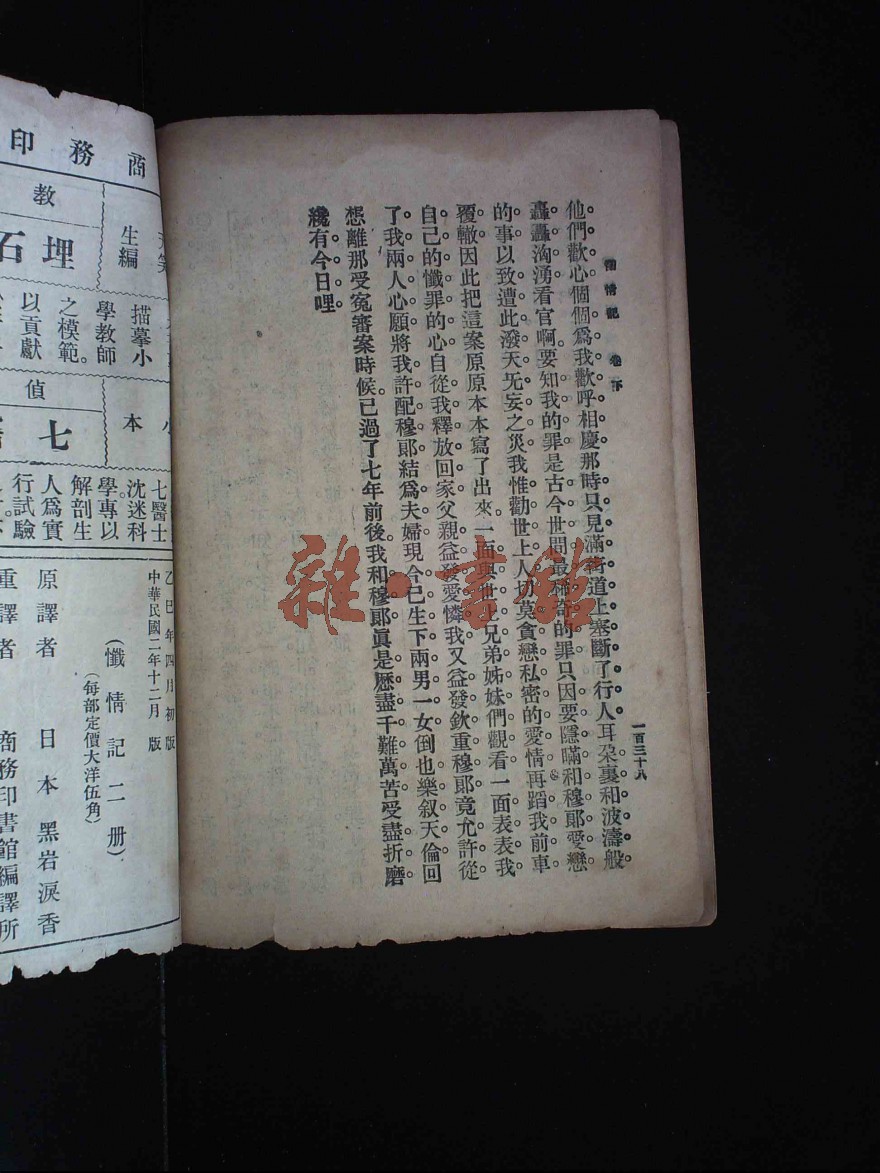 懺情記 卷下
一百三十八
他們歡心個個爲我歡呼相慶那時只見滿街道上塞斷了行人耳朶裏和波濤般
轟轟洶湧看官啊要知我的罪是古今世間最稀奇的罪只因要隱瞞和穆郞愛戀
的事以致遭此潑天旡妄之災我惟勸世上人切莫貪戀私密的愛情再蹈我前車
覆轍因此把這案原原本本寫了出來一面與世上兄弟姊妹們觀看一面表表我
自己的懺罪的心自從我釋放回家父親益發愛憐我又益發欽重穆郞竟允許從
了我兩人心願將我許配穆郞結爲夫婦現今已生下兩男一女倒也樂叙天倫回
想離那受寃審案時候已過了七年前後我和穆郞眞是歷盡千難萬苦受盡折磨
纔有今日哩。
商務印
教
生編
埋石
描摹小
學教師
之模範。
以貢獻
偵
本
七
七醫士
沈迷科
學。專以
解剖生
人爲實
行試驗
乙巳年四月初版
中華民國二年十二月 版
(懺情記二册)
(每部定價大洋伍角)
原譯者 日本黑岩淚香
重譯者 商務印書館編譯所
雜·書館